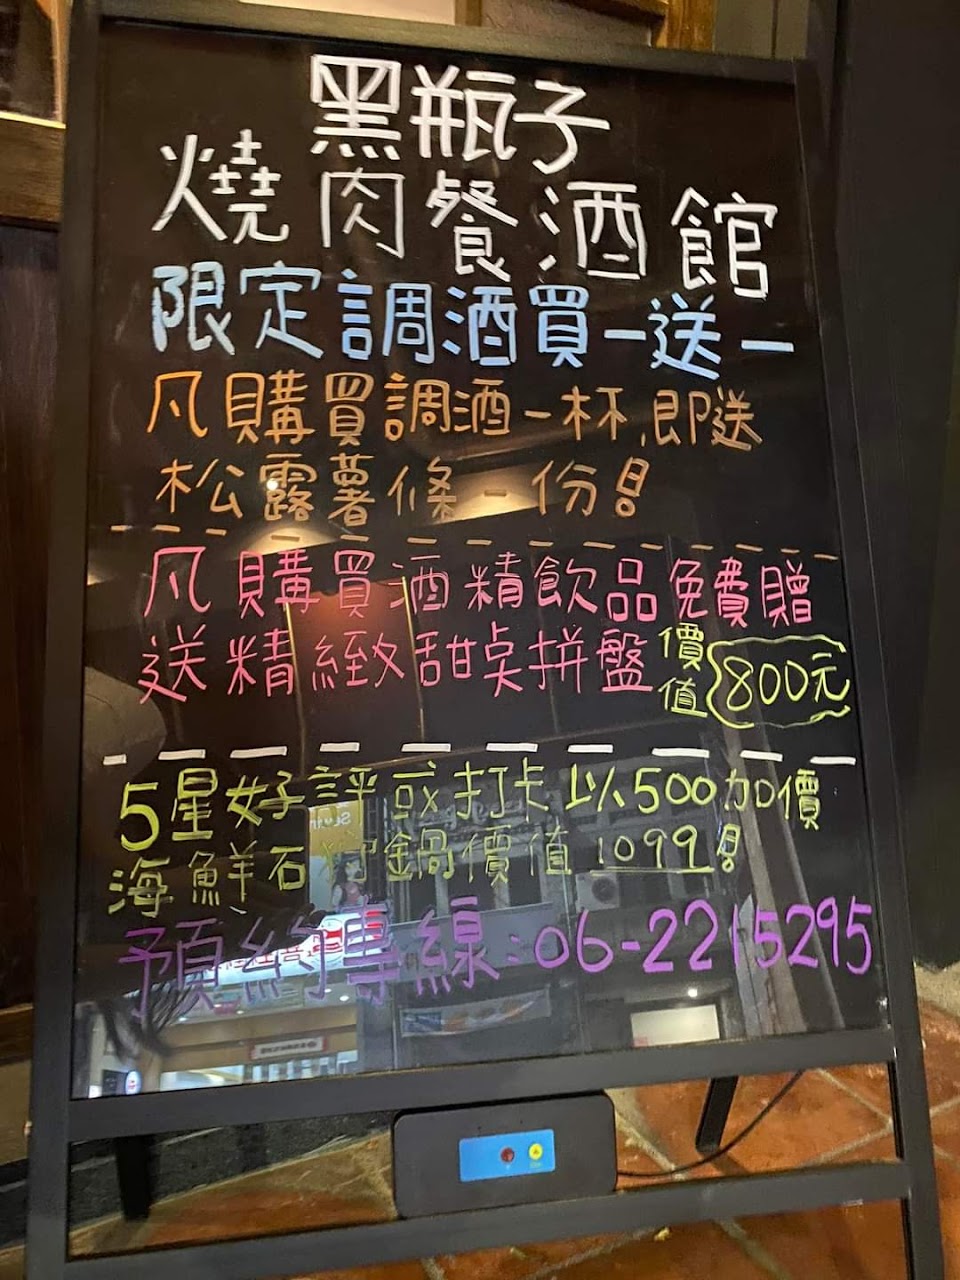 黑瓶子
燒肉餐酒館
限定調酒買一送一
凡購買調酒一杯,即送
松露薯條一份!
凡購買酒精飲品免費贈
送精緻甜桌拼盤價值800元
5星好評或打卡以500加價
海鮮石狗鍋價值1099!
預約專線:06-2215295